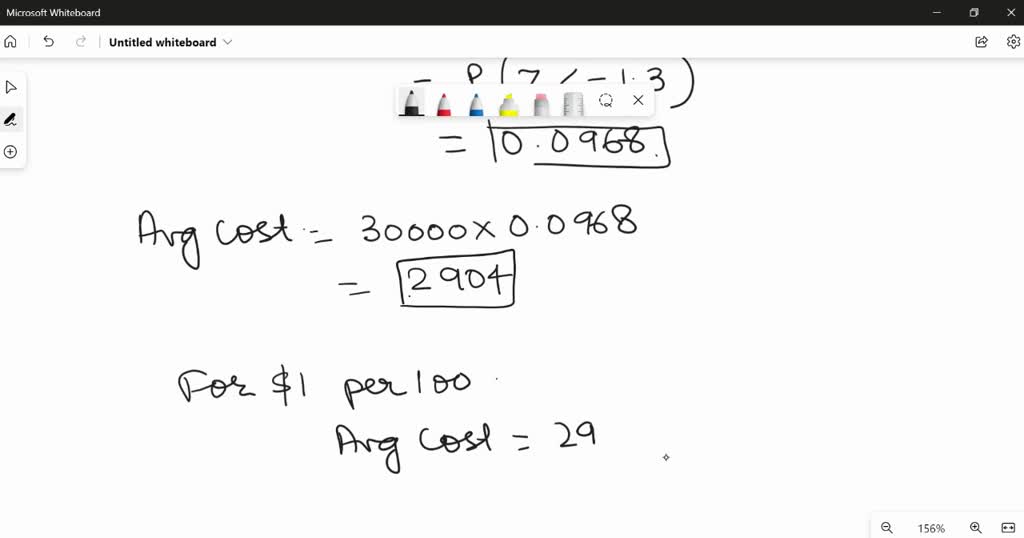 Microsoft Whiteboard
Untitled whiteboard
= P(Z < -1.3)
= 0.0968
Avg cost = 30000 × 0.0968
= 2904
For $1 per 100
Avg cost = 29
156%